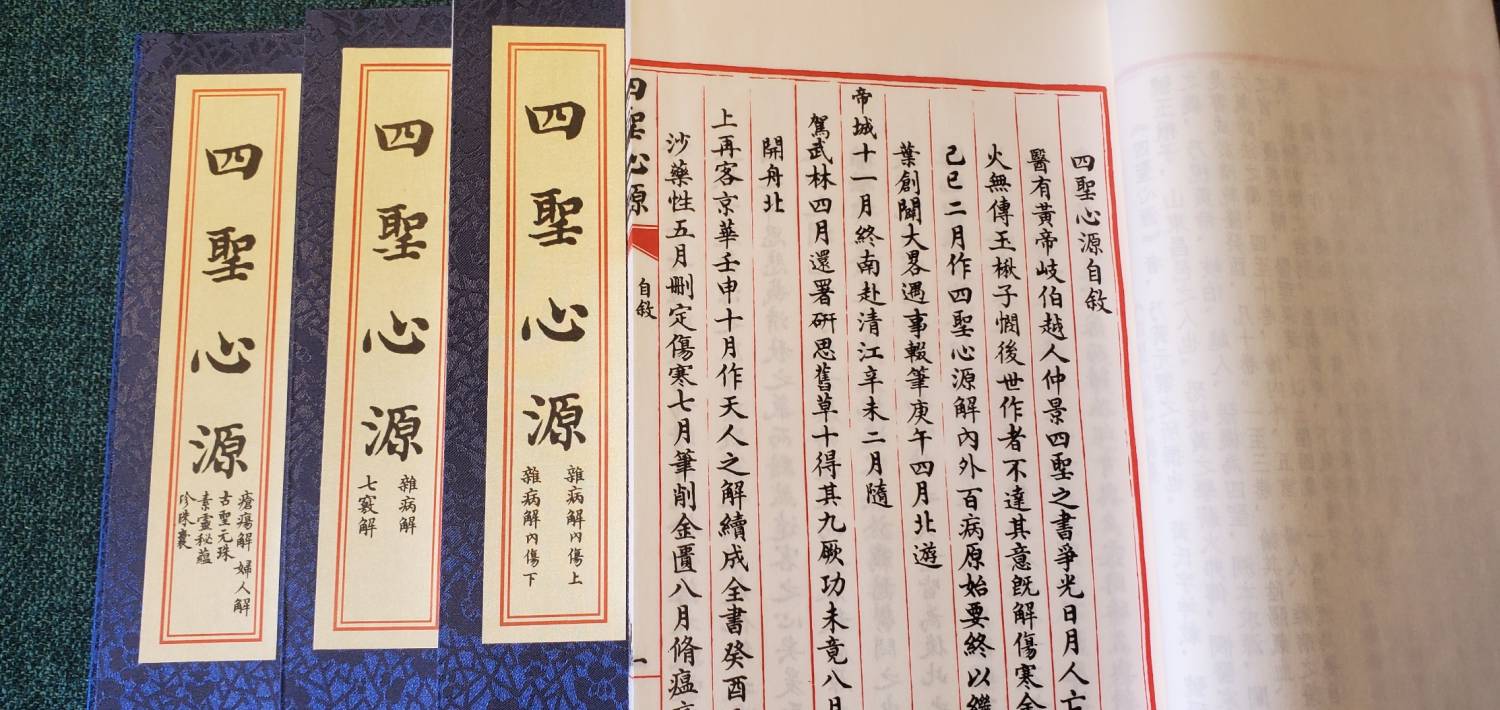 四聖心源自敘
醫有黃帝岐伯越人仲景四聖之書爭光日月人亡
火無傳玉楸子憫後世作者不達其意既解傷寒金
己巳二月作四聖心源解內外百病原始要終以繼
葉創開大畧遇事輟筆庚午四月北遊
帝城十一月終南赴清江辛未二月隨
駕武林四月還署研思舊草十得其九厥功未竟八月
開舟北
上再客京華壬申十月作天人之解續成全書癸酉
沙藥性五月刪定傷寒七月筆削金匱八月脩瘟
四聖心源
自敘
一
四聖心源
雜病解內傷上
雜病解內傷下
四聖心源
雜病解
七竅解
四聖心源
瘡瘍解 婦人解
古聖元珠
素靈秘蘊
珍珠囊